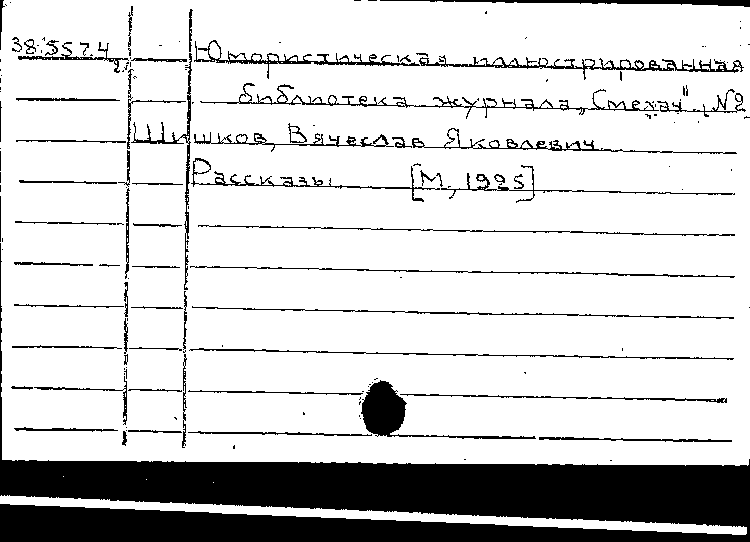 38.557.4 Юмористическая иллюстрированная
2.
библиотека журнала „Смехач". №2
Шишков, Вячеслав Яковлевич
Рассказы. [М., 1925]